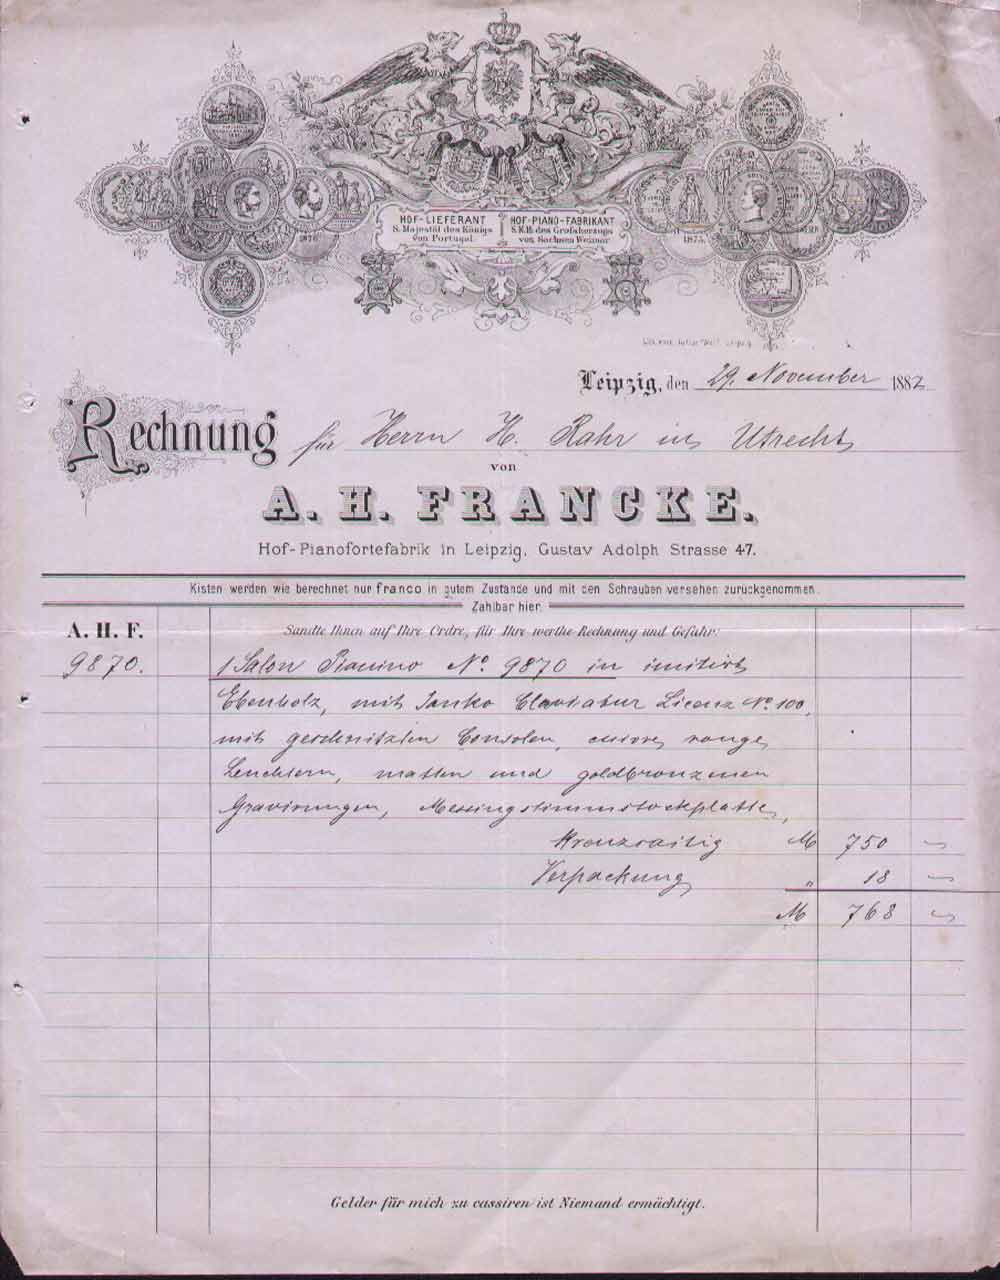 HOF-LIEFERANT
S. Majestät des Königs
von Portugal.
HOF-PIANO-FABRIKANT
S.K.H. des Großherzogs
von Sachsen Weimar
1875.
Leipzig, den 29. November 1882
Rechnung für Herrn H. Rahr in Utrecht
von
A. H. FRANCKE.
Hof-Pianofortefabrik in Leipzig, Gustav Adolph Strasse 47.
Kisten werden wie berechnet nur franco in gutem Zustande und mit den Schrauben versehen zurückgenommen.
Zahlbar hier.
A. H. F. Sandte Ihnen auf Ihre Ordre, für Ihre werthe Rechnung und Gefahr:
9870. 1 Salon Pianino No. 9870 in imitirt
Ebenholz, mit Janko Claviatur Licenz No. 100,
mit geschnitzten Consolen, cuivre rouge
Leuchtern, matten und goldbronzenen
Gravirungen, Messingstimmstockplatte,
Kreuzsaitig M 750 —
Verpackung " 18 —
M 768 —
Gelder für mich zu cassiren ist Niemand ermächtigt.